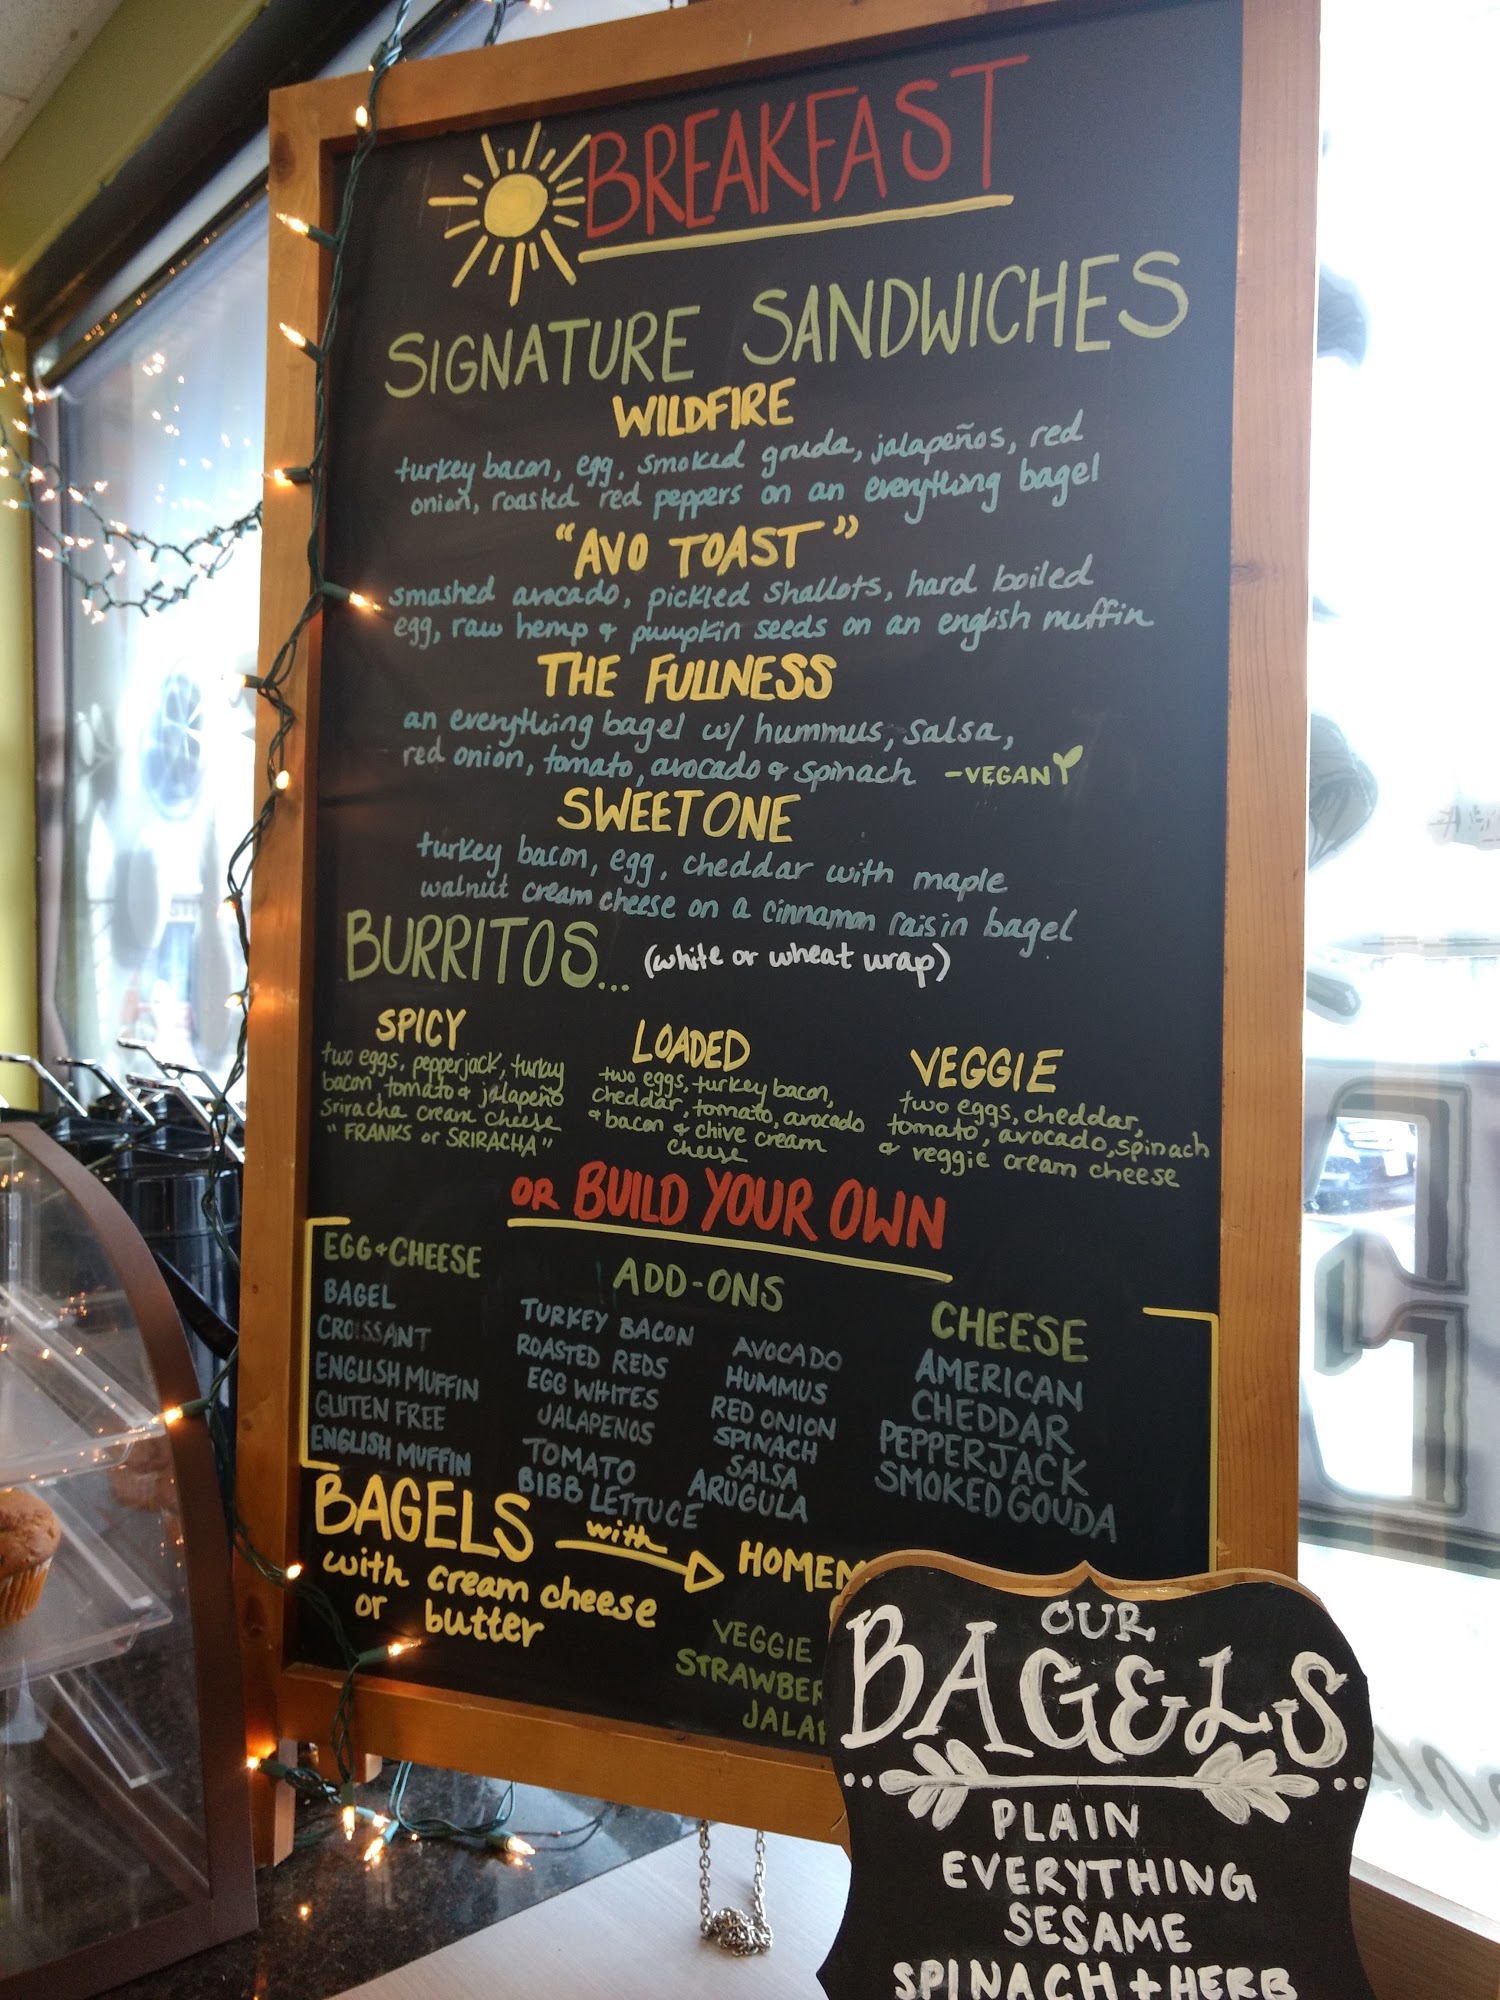 BREAKFAST
SIGNATURE SANDWICHES
WILDFIRE
turkey bacon, egg, smoked gouda, jalapeños, red
onion, roasted red peppers on an everything bagel
"AVO TOAST"
smashed avocado, pickled shallots, hard boiled
egg, raw hemp & pumpkin seeds on an english muffin
THE FULLNESS
an everything bagel w/ hummus, salsa,
red onion, tomato, avocado & spinach -VEGAN
SWEET ONE
turkey bacon, egg, cheddar with maple
walnut cream cheese on a cinnamon raisin bagel
BURRITOS... (white or wheat wrap)
SPICY
two eggs, pepperjack, turkey
bacon, tomato & jalapeño
Sriracha cream cheese
"FRANKS or SRIRACHA"
LOADED
two eggs, turkey bacon,
cheddar, tomato, avocado
& bacon & chive cream
cheese
VEGGIE
two eggs, cheddar,
tomato, avocado, spinach
& veggie cream cheese
OR BUILD YOUR OWN
EGG & CHEESE
BAGEL
CROISSANT
ENGLISH MUFFIN
GLUTEN FREE
ENGLISH MUFFIN
ADD-ONS
TURKEY BACON
ROASTED REDS
EGG WHITES
JALAPENOS
TOMATO
BIBB LETTUCE
AVOCADO
HUMMUS
RED ONION
SPINACH
SALSA
ARUGULA
CHEESE
AMERICAN
CHEDDAR
PEPPERJACK
SMOKED GOUDA
BAGELS with HOMEM
with cream cheese
or butter
VEGGIE
STRAWBER
JALAP
OUR
BAGELS
PLAIN
EVERYTHING
SESAME
SPINACH + HERB